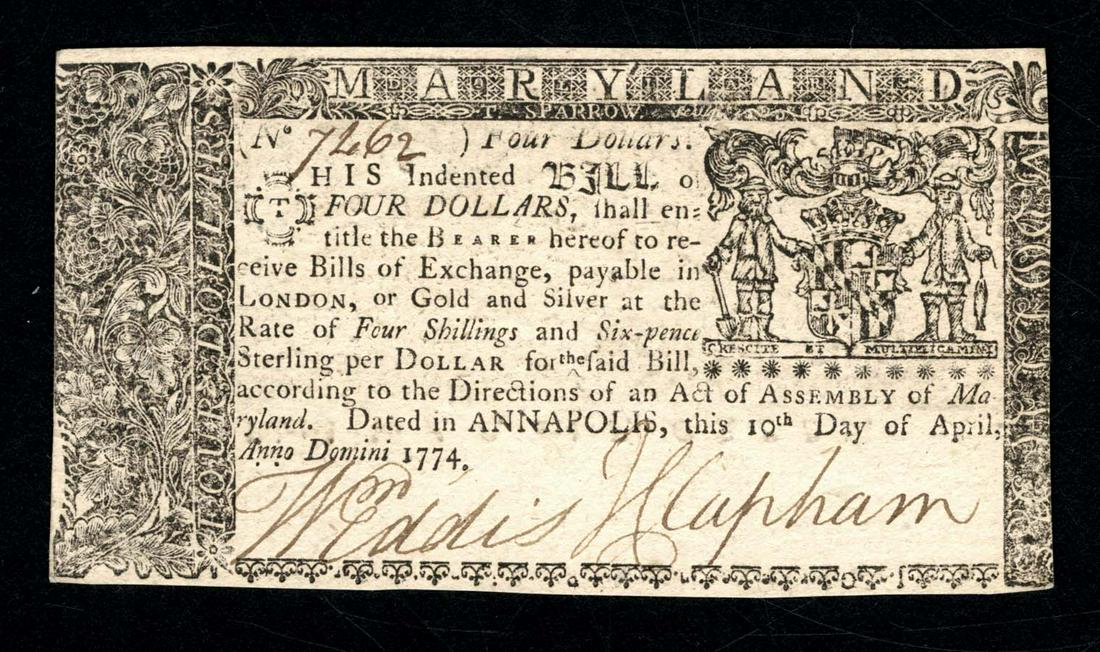 MARYLAND
T. SPARROW
FOUR DOLLARS
(Nº 7462 ) Four Dollars.
THIS Indented BILL o
FOUR DOLLARS, ſhall en=
title the BEARER hereof to re-
ceive Bills of Exchange, payable in
LONDON, or Gold and Silver at the
Rate of Four Shillings and Six-pence
Sterling per DOLLAR for the ſaid Bill,
CRESCITE ET MULTIPLICAMINI
according to the Directions of an Act of ASSEMBLY of Ma-
ryland. Dated in ANNAPOLIS, this 10th Day of April,
Anno Domini 1774.
Wm Eddis J Clapham